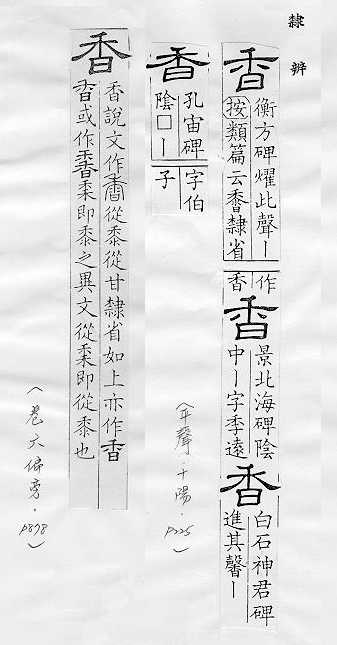 隸辨
香
衡方碑燿此聲丨
按類篇云黍隸省
作
香
香
景北海碑陰
中丨字季遠
香
白石神君碑
進其馨丨
香
孔宙碑
陰□丨
字伯
子
(平聲.十陽.P225)
香
香說文作𪏽從黍從甘隸省如上亦作香
香或作𪏰桼即黍之異文從桼即從黍也
(卷六偏旁.P898)